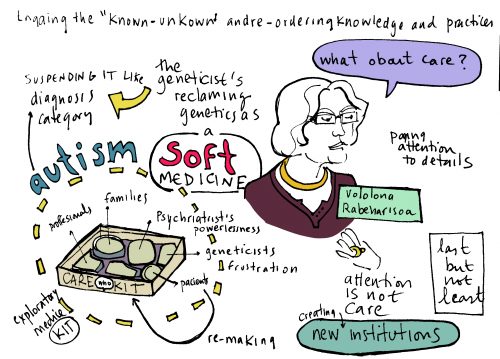 Logging the "known-unkown" and re-ordering knowledge and practices
what about care?
SUSPENDING IT LIKE
diagnosis
category
the
geneticist's
reclaming
genetics as
a
SOFT
MEDICINE
autism
paying
attention
to details
Vololona
Rabeharisoa
families
profesionals
Psychriatrist's
powerlessness
geneticists
frustration
patients
CARE
KIT
exploratory
KIT
re-making
attention
IS not
care
creating
new institutions
last
but
not
least